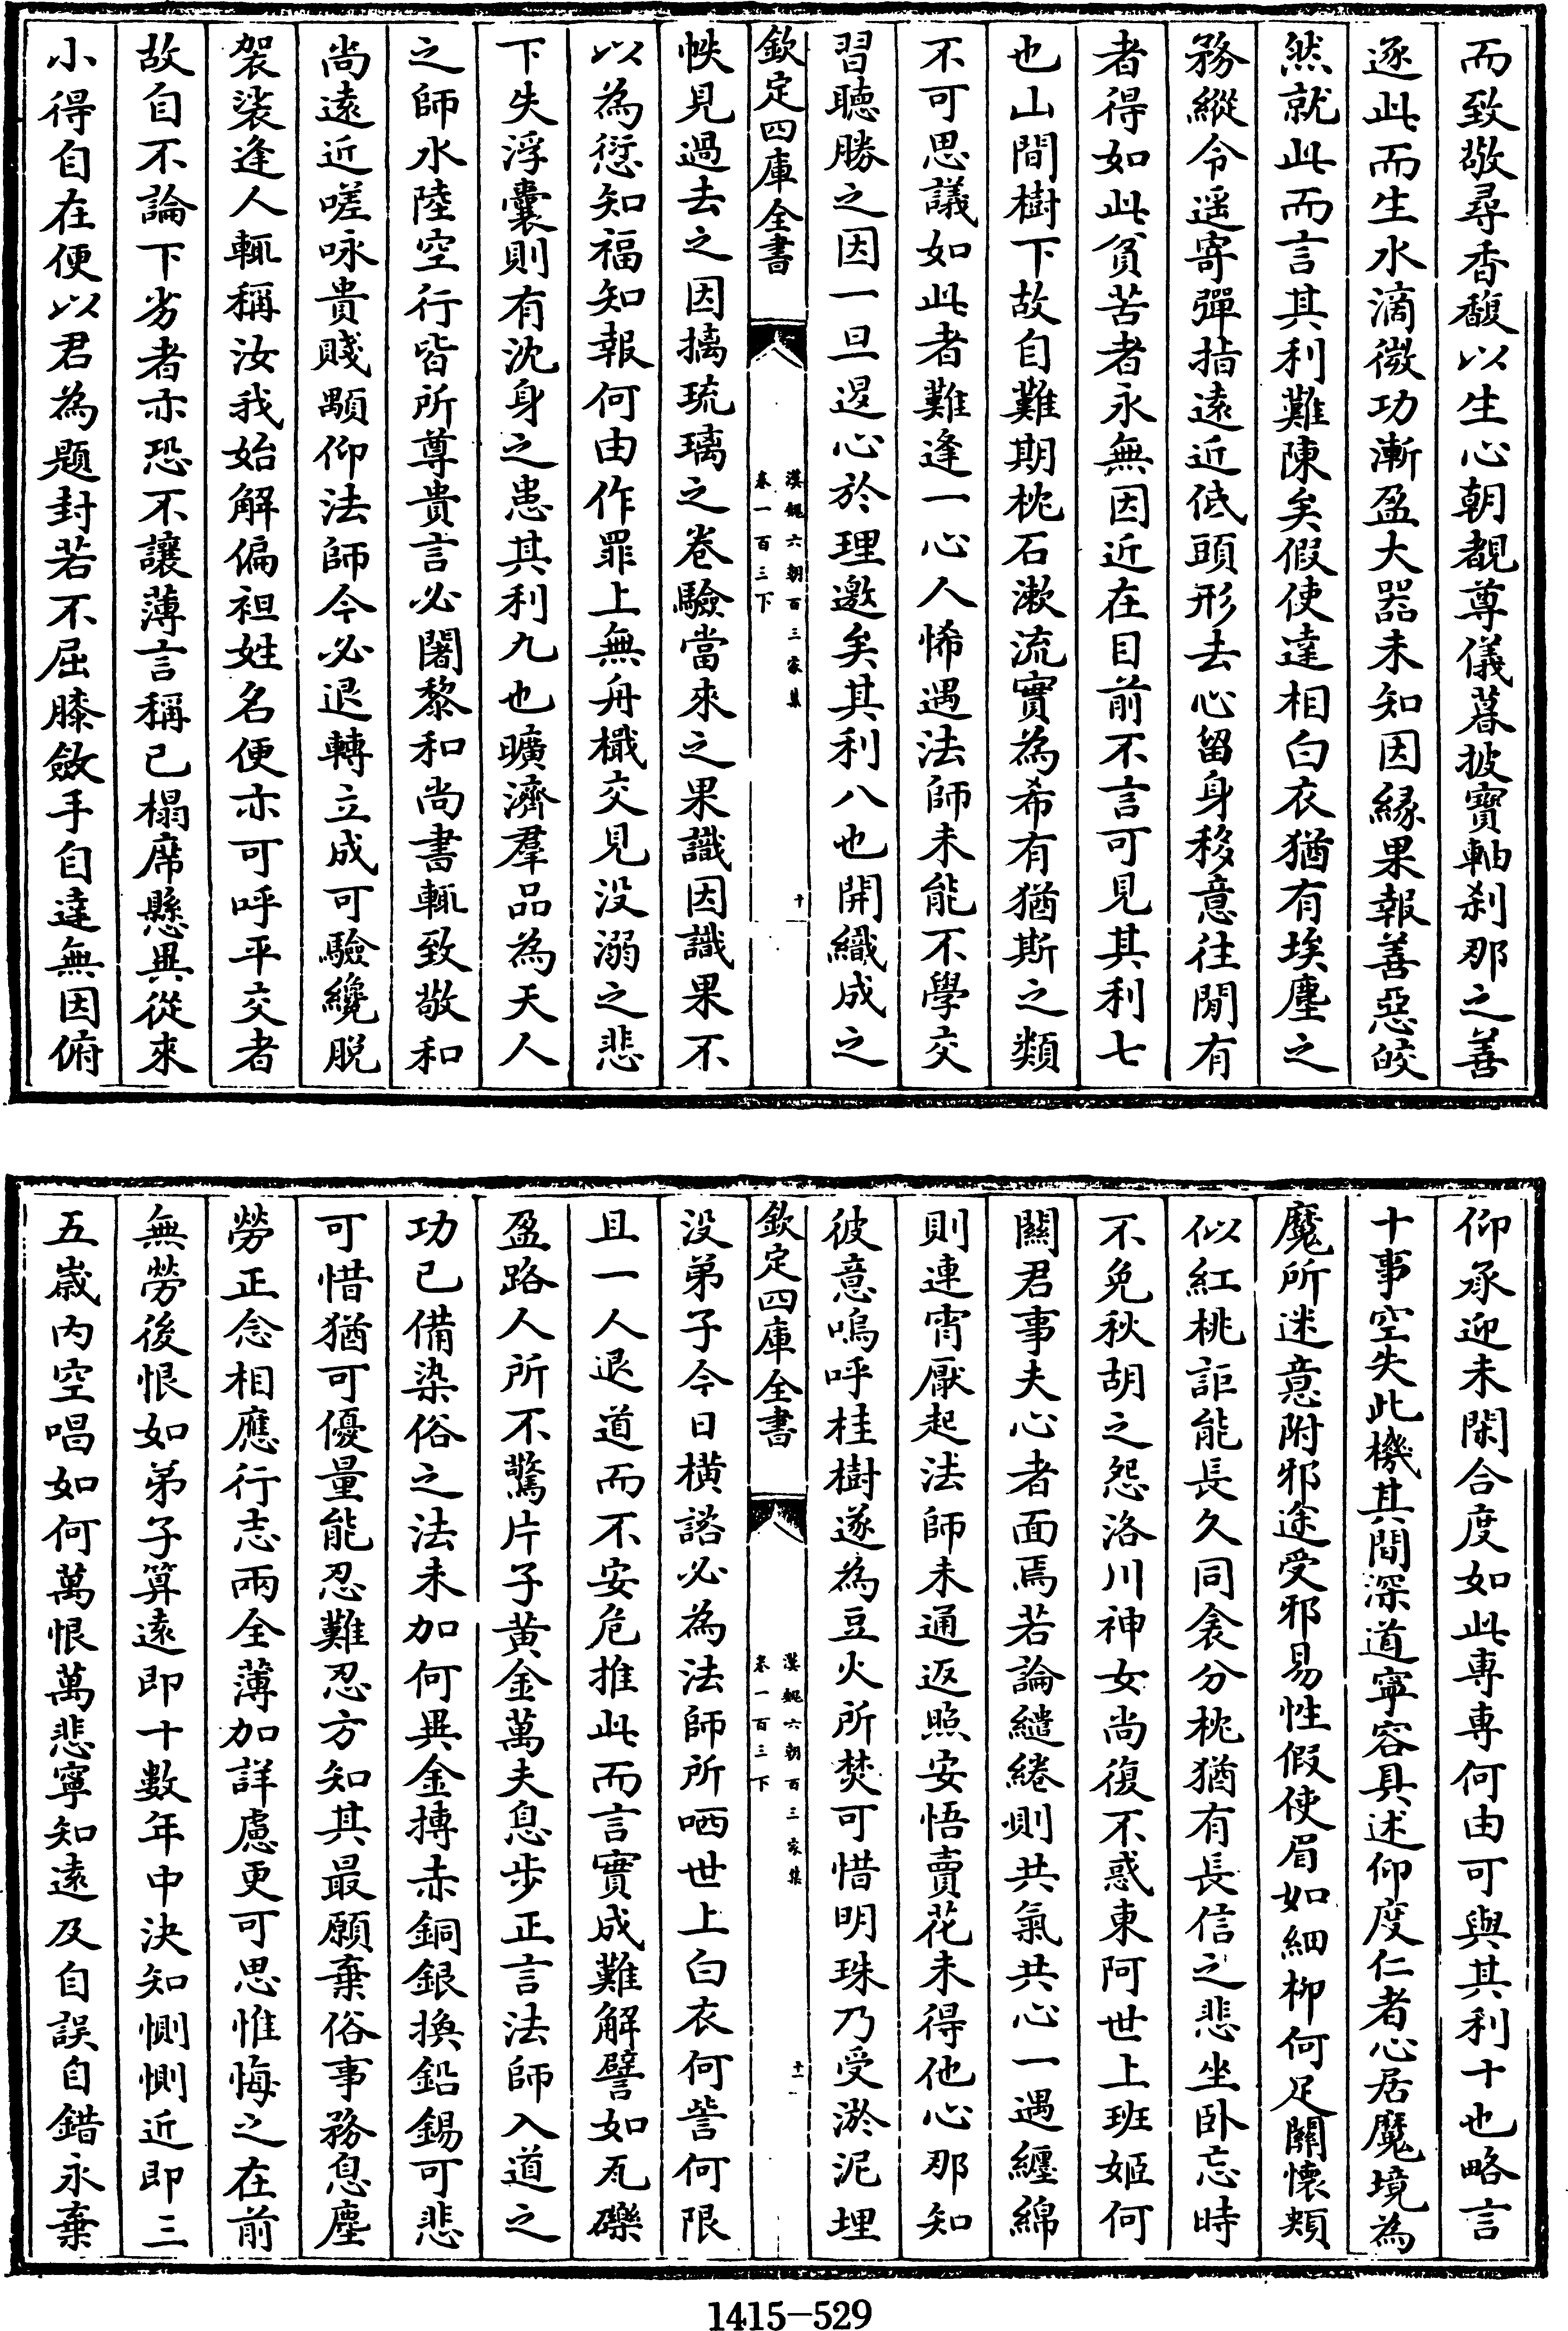 而致敬尋香馥以生心朝覩尊儀暮披寶軸刹那之善
遂此而生水滴微功漸盈大器未知因緣果報善惡皎
然就此而言其利難陳矣假使達相白衣猶有埃塵之
務縱令遥寄彈指遠近低頭形去心留身移意往閒有
者得如此貧苦者永無因近在目前不言可見其利七
也山間樹下故自難期枕石漱流實為希有猶斯之類
不可思議如此者難逢一心人悕遇法師未能不學交
習聽勝之因一旦退心於理邀矣其利八也開織成之
欽定四庫全書
漢魏六朝百三家集
卷一百三下
十
帙見過去之因摛琉璃之卷驗當來之果識因識果不
以為愆知福知報何由作罪上無舟檝交見没溺之悲
下失浮囊則有沈身之患其利九也曠濟羣品為天人
之師水陸空行皆所尊貴言必闍黎和尚書輒致敬和
尚遠近嗟咏貴賤顒仰法師今必退轉立成可驗纔脱
袈裟逢人輒稱汝我始解偏袒姓名便亦可呼平交者
故自不論下劣者亦恐不讓薄言稱已榻席懸異從來
小得自在便以君為題封若不屈膝斂手自達無因俯
仰承迎未閑合度如此專專何由可與其利十也略言
十事空失此機其間深道寧容具述仰度仁者心居魔境為
魔所迷意附邪途受邪易性假使眉如細柳何足關懷頰
似紅桃詎能長久同衾分枕猶有長信之悲坐卧忘時
不免秋胡之怨洛川神女尚復不惑東阿世上班姬何
關君事夫心者面焉若論繾綣則共氣共心一遇纒綿
則連宵厭起法師未通返照安悟賣花未得他心那知
彼意嗚呼桂樹遂為豆火所焚可惜明珠乃受淤泥埋
欽定四庫全書
漢魏六朝百三家集
卷一百三下
十一
没弟子今日横諮必為法師所哂世上白衣何訾何限
且一人退道而不安危推此而言實成難解譬如瓦礫
盈路人所不驚片子黄金萬夫息步正言法師入道之
功已備染俗之法未加何異金摶赤銅銀換鉛錫可悲
可惜猶可優量能忍難忍方知其最願棄俗事務息塵
勞正念相應行志兩全薄加詳慮更可思惟悔之在前
無勞後恨如弟子算遠即十數年中決知惻惻近即三
五歲内空唱如何萬恨萬悲寧知遠及自誤自錯永棄
1415-529